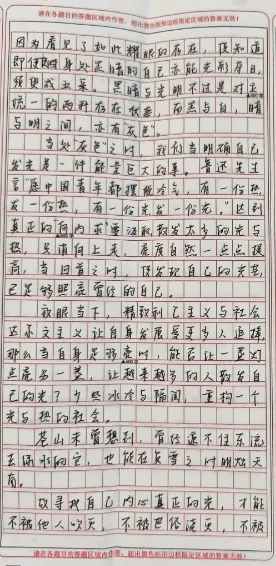 请在各题目的答题区域内作答，超出黑色矩形边框限定区域的答案无效！
因为看见了如此耀眼的存在，须知道
即使身处黑暗的自己亦能光彩夺目，
黑暗与光明不过是对立
统一的两种存在状态，而黑与白，暗
与明之间，亦有灰色。
当处"灰色"之时，我们当明确自己
发光是一件能量巨大的事。鲁迅先生
言"愿中国青年都摆脱冷气，有一份热
发一份热，有一份光发一份光。"达到
真正的"向内求"要汲取散发太多的光与
热，只须向上走，亮度自然一点点提
高，当回首之时，顶发现自己的光芒
已足够照亮曾经的自己。
放眼当下，精致利己主义与社会
达尔文主义让自身发展受更多人追捧，
那么当自身足够亮时，能否让一盏灯
点亮另一盏，让越来越多的人散发自
己的光？少些冰冷与隔阂，重构一个
光与热的社会。
苍山未曾想到，曾经遮不住东流
去绿水的它，也能在负雪之时明烛天
南。
故寻找自己内心真正的光，才能
不被他人吹灭，不被巴径浇灭，不被
请在各题目的答题区域内作答，超出黑色矩形边框限定区域的答案无效！